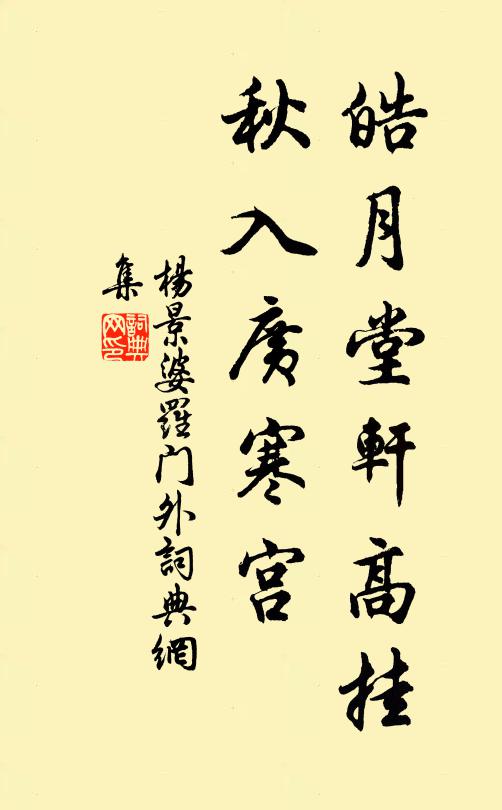 皓月堂軒高挂
秋入廣寒宮
楊景婆羅門外詞典網
集
詞典
网印